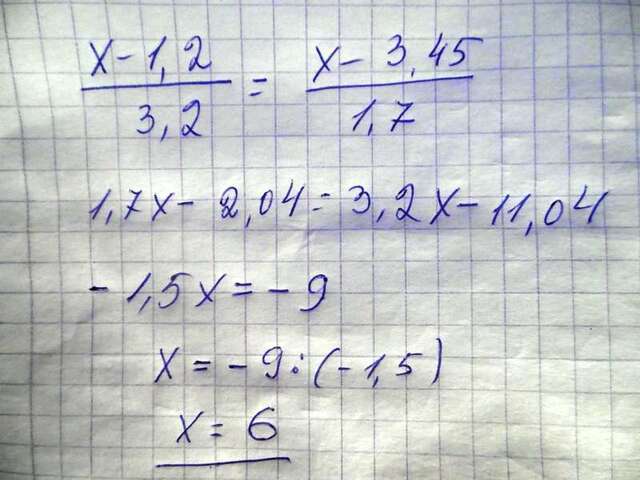 x-1,2/3,2 = x-3,45/1,7
1,7x-2,04=3,2x-11,04
-1,5x=-9
x=-9:(-1,5)
x=6